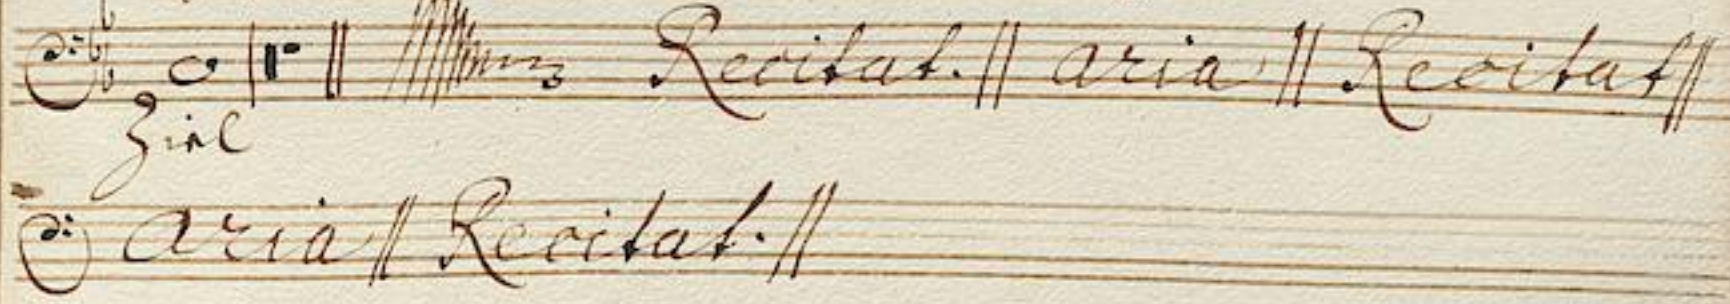 Recitat. || aria || Recitat ||
Ziel
aria || Recitat. ||